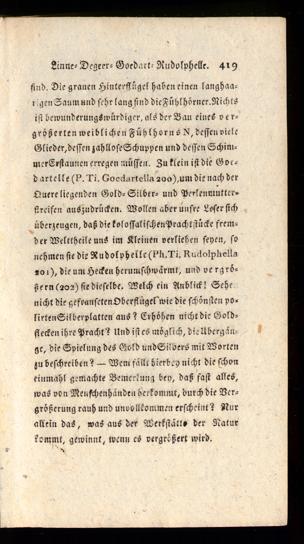 Linne- Degeer- Goedart- Rudolphelle. 419
sind. Die grauen Hinterflügel haben einen langhaa-
rigen Saum und sehr lang sind die Fühlhörner. Nichts
ist bewunderungswürdiger, als der Bau eines ver-
größerten weiblichen Fühlhorns N, dessen viele
Glieder, dessen zahllose Schuppen und dessen Schim-
mer Erstaunen erregen müssen. Zu klein ist die Goe-
dartelle (P. Ti. Goedartella 200), um die nach der
Quere liegenden Gold- Silber- und Perlenmutter-
streifen auszudrücken. Wollen aber unsre Leser sich
überzeugen, daß die kolossalischen Prachtstücke frem-
der Welttheile uns im Kleinen verliehen seyen, so
nehmen sie die Rudolphelle (Ph. Ti. Rudolphella
201), die um Hecken herumschwärmt, und vergrö-
ßern (202) sie dieselbe. Welch ein Anblick! Sehe
nicht die gefransten Oberflügel wie die schönsten po-
lirten Silberplatten aus? Erhöhen nicht die Gold-
flecken ihre Pracht? Und ist es möglich, die Übergän-
ge, die Spielung des Gold und Silvers mit Worten
zu beschreiben? — Wem fällt hierbey nicht die schon
einmahl gemachte Bemerkung bey, daß fast alles,
was von Menschenhänden herkommt, durch die Ver-
größerung rauh und unvollkommen erscheint? Nur
allein das, was aus der Werkstätte der Natur
kommt, gewinnt, wenn es vergrößert wird.